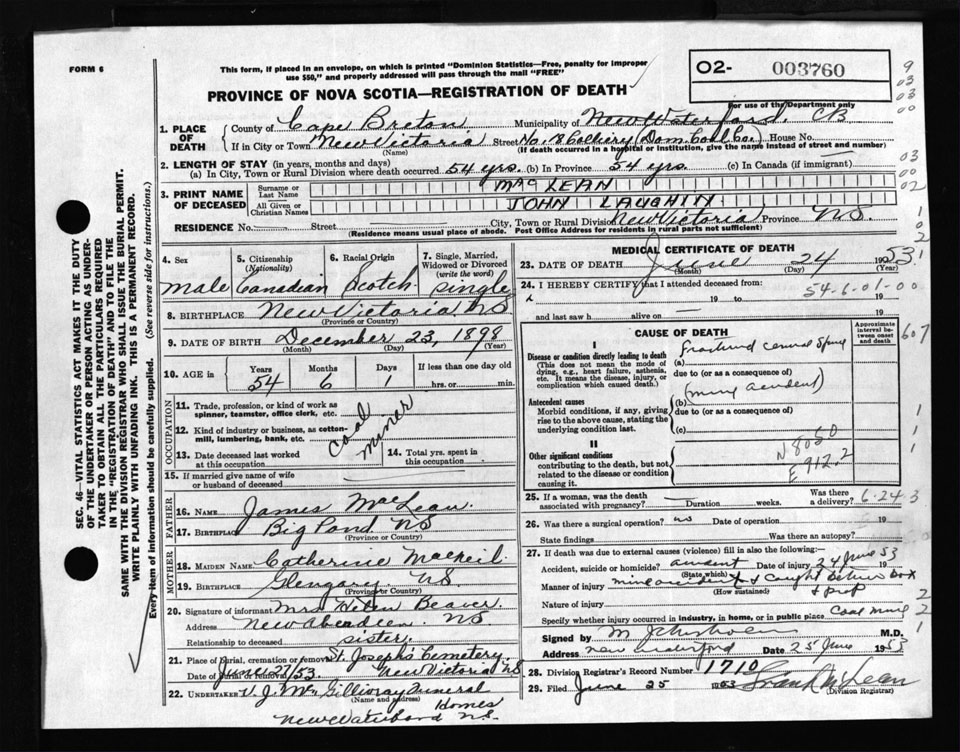 FORM 6
This form, if placed in an envelope, on which is printed "Dominion Statistics—Free, penalty for improper
use $50," and properly addressed will pass through the mail "FREE"
PROVINCE OF NOVA SCOTIA—REGISTRATION OF DEATH
O2- 003760
For use of the Department only
9
03
03
00
1. PLACE OF DEATH
County of Cape Breton Municipality of New Waterford. CB
If in City or Town New Victoria Street No. 18 Colliery (Dom. Coal Co.) House No.
(Name) (If death occurred in a hospital or institution, give the name instead of street and number)
2. LENGTH OF STAY (in years, months and days)
(a) In City, Town or Rural Division where death occurred 54 yrs. (b) In Province 54 yrs. (c) In Canada (if immigrant) —
03
00
02
3. PRINT NAME OF DECEASED
Surname or Last Name MACLEAN
All Given or Christian Names JOHN LAUGHIN
RESIDENCE No. Street City, Town or Rural Division New Victoria Province NS.
(Residence means usual place of abode. Post Office Address for residents in rural parts not sufficient)
1
0
2
SEC. 46—VITAL STATISTICS ACT MAKES IT THE DUTY
OF THE UNDERTAKER OR PERSON ACTING AS UNDER-
TAKER TO OBTAIN ALL THE PARTICULARS REQUIRED
IN THE "REGISTRATION OF DEATH" AND TO FILE THE
SAME WITH THE DIVISION REGISTRAR WHO SHALL ISSUE THE BURIAL PERMIT.
WRITE PLAINLY WITH UNFADING INK. THIS IS A PERMANENT RECORD.
Every item of information should be carefully supplied. (See reverse side for instructions.)
4. Sex male
5. Citizenship (Nationality) Canadian
6. Racial Origin Scotch
7. Single, Married, Widowed or Divorced (write the word) single
8. BIRTHPLACE New Victoria, NS
(Province or Country)
9. DATE OF BIRTH December 23, 1898
(Month) (Day) (Year)
10. AGE in Years 54 Months 6 Days 1 If less than one day old hrs. or min.
OCCUPATION
11. Trade, profession, or kind of work as spinner, teamster, office clerk, etc. coal miner
12. Kind of industry or business, as cotton-mill, lumbering, bank, etc.
13. Date deceased last worked at this occupation
14. Total yrs. spent in this occupation
15. If married give name of wife or husband of deceased —
FATHER
16. Name James MacLean.
17. Birthplace Big Pond NS
(Province or Country)
MOTHER
18. MAIDEN NAME Catherine MacNeil.
19. Birthplace Glengary. NS.
(Province or Country)
20. Signature of informant Mrs Helen Beaver.
Address New Aberdeen. NS.
Relationship to deceased sister.
21. Place of burial, cremation or removal St. Joseph's Cemetery,
Date of burial or removal June 27/53. New Victoria NS
22. UNDERTAKER V. J. McGillivray Funeral Homes
(Name and Address)
New Waterford NS.
MEDICAL CERTIFICATE OF DEATH
23. DATE OF DEATH June 24 1953
(Month) (Day) (Year)
24. I HEREBY CERTIFY that I attended deceased from:
19 to 19
54-6-01-00
and last saw h alive on — 19
CAUSE OF DEATH
Approximate interval between onset and death
607
I
Disease or condition directly leading to death
(This does not mean the mode of dying, e.g., heart failure, asthenia, etc. It means the disease, injury, or complication which caused death.)
(a) Fractured cervical Spine
due to (or as a consequence of)
(mine accident)
Antecedent causes
Morbid conditions, if any, giving rise to the above cause, stating the underlying condition last.
(b)
due to (or as a consequence of)
(c)
II
Other significant conditions
contributing to the death, but not related to the disease or condition causing it.
N8050
E912.2
1
1
1
25. If a woman, was the death associated with pregnancy? — Duration weeks. Was there a delivery?
6-24 3
26. Was there a surgical operation? no Date of operation 19
State findings Was there an autopsy?
27. If death was due to external causes (violence) fill in also the following:
Accident, suicide or homicide? accident Date of injury 24 June 53
(State which)
Manner of injury mine accident caught between box + prop
(How sustained)
Nature of injury
Specify whether injury occurred in industry, in home, or in public place Coal Mine
2
2
1
Signed by M. D.
Address New Waterford Date 25 June 1953
28. Division Registrar's Record Number 1710
29. Filed June 25 1953 Frank McLean
(Division Registrar)